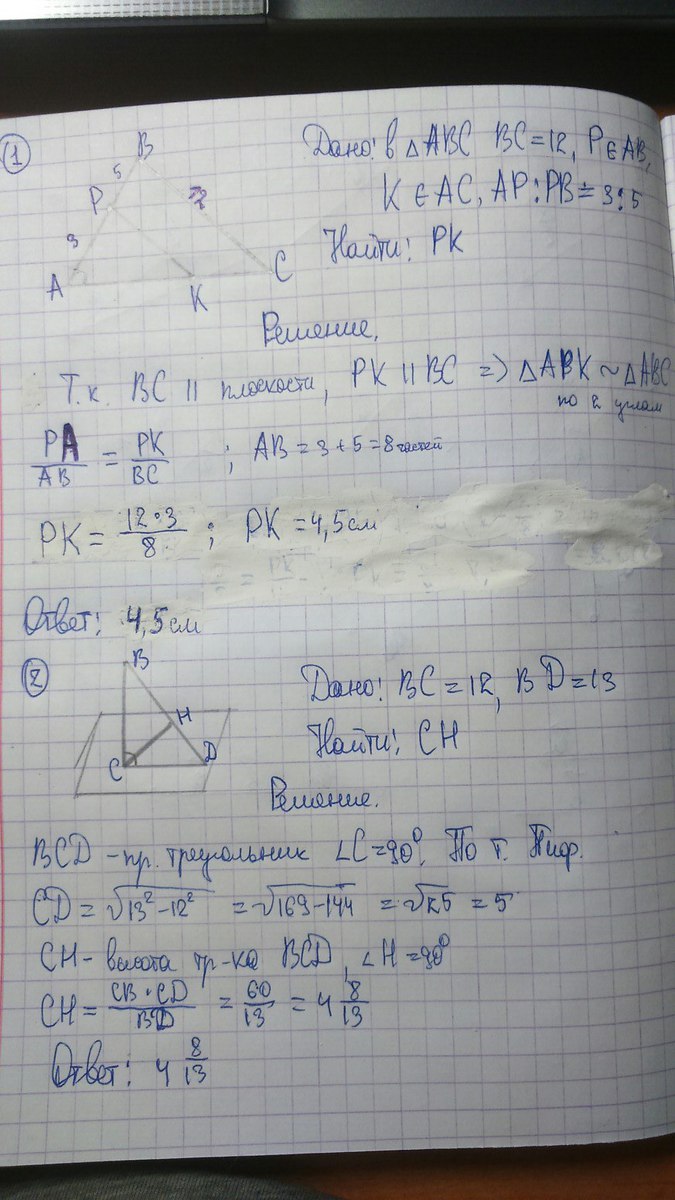 1
B
5
P
3
A
K
C
Дано: в △ABC BC=12, P∈AB,
K∈AC, AP:PB=3:5
Найти: PK
Решение.
Т.к. BC || плоскости, PK || BC => △APK ~ △ABC
по 2 углам
PA/AB = PK/BC ; AB = 3+5=8 частей
PK = 12·3/8 ; PK = 4,5 см
Ответ: 4,5 см
2
B
H
C
D
Дано: BC=12, BD=13
Найти: CH
Решение.
BCD – пр. треугольник ∠C=90°. По т. Пиф.
CD = √13²-12² = √169-144 = √25 = 5
CH – высота тр-ка BCD, ∠H=90°
CH = CB·CD/BD = 60/13 = 4 8/13
Ответ: 4 8/13